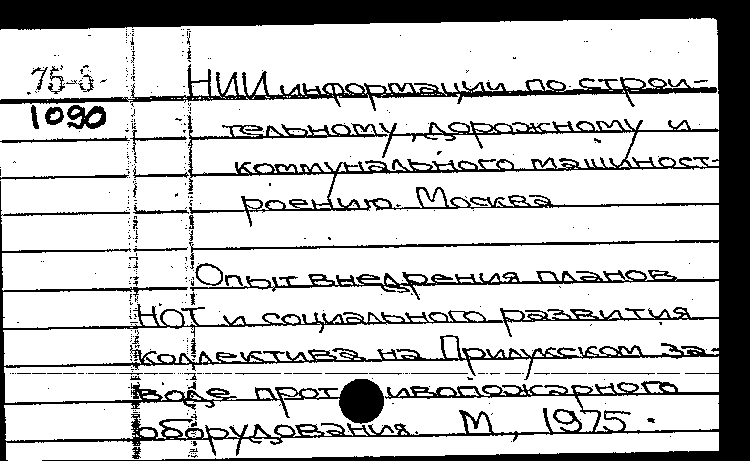 75-6-
НИИ информации по строи-
1090
тельному, дорожному и
коммунального машиност-
роению. Москва
Опыт внедрения планов
НОТ и социального развития
коллектива на Прилукском за-
воде противопожарного
оборудования. М, 1975.